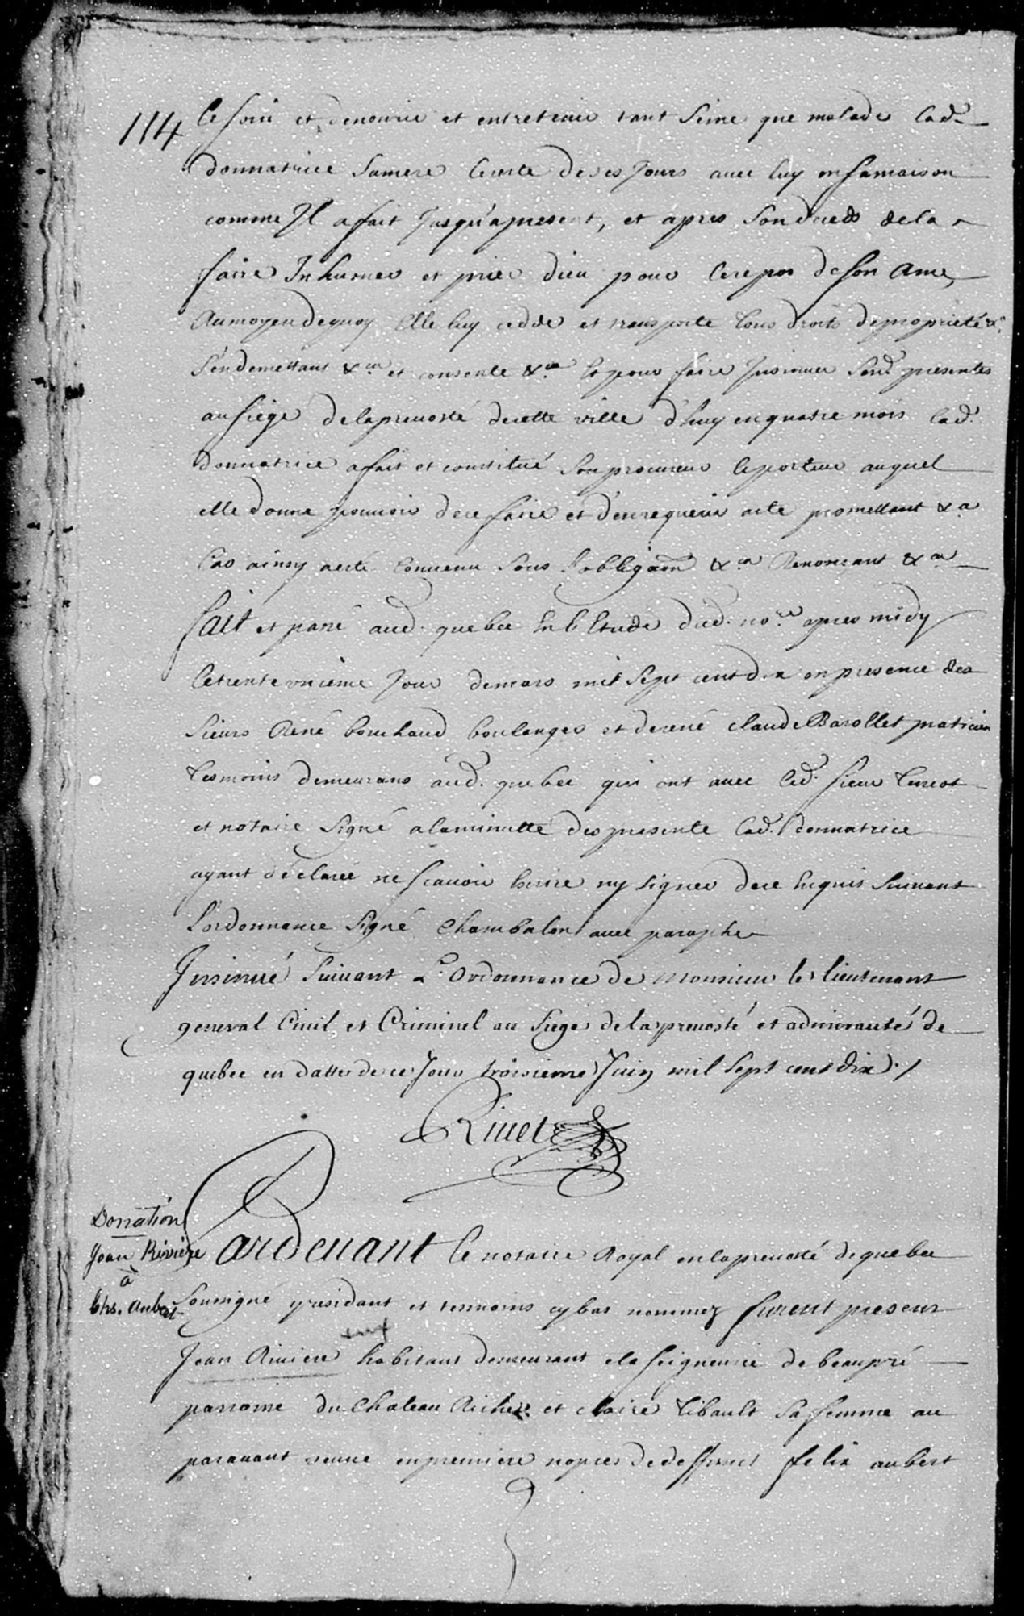 114
le soin et denourir et entretenir tant seine que malade lad.
donnatrice samere lereste desesjours avec luy ensamaison
comme Il afait Jusqu'apresent, et apres sondeceds dela
faire Inhumer et prier dieu pour lerepos deson ame
aumoyen dequoy elle luy cedde et transporte tous droits depropriété &c.
s'endemettant &ca et consente &ca et pour faire Insinuer sesd. presentes
ausiege delaprevosté decette ville d'huy enquatre mois lad.
donnatrice afait et constitué sonprocureur leporteur auquel
elle donne pouvoir dece faire et d'enrequerir acte promettant &ca
Car ainsy aesté convenu sous l'obligaon &ca Renoncant &ca
fait et passé aud. quebec En l'Etude dud. nore apres midy
letrente unieme Jour demars mil sept cent dix en presence des
sieurs René bouchaud boulanger et derené claude Barollet praticien
tesmoins demeurans aud. quebec qui ont avec led. sieur
et notaire signé alaminutte des presente lad. donnatrice
ayant déclaré ne scavoir Ecrire ny signer dece Enquis suivant
l'ordonnance signé Chambalon avec paraphe
Jnsinué suivant L'Ordonnance de Monsieur le lieutenant
general Civil et Criminel au siege delaprevosté et admirauté de
quebec en datte de ce Jour troisieme Juin mil sept cent dix ./
Rivet
Donnation
Jean Rivière
à
Chs. Aubert
Pardevant le notaire Royal enlaprevosté dequebec
Soussigné yresidant et temoins cybas nommez furent presens
Jean Riviere habitant demeurant ela seigneurie de beaupré
parroisse du Chateau Richer et claire Tibault sa femme au
paravant veuve enpremiere nopces dedeffunct felix aubert